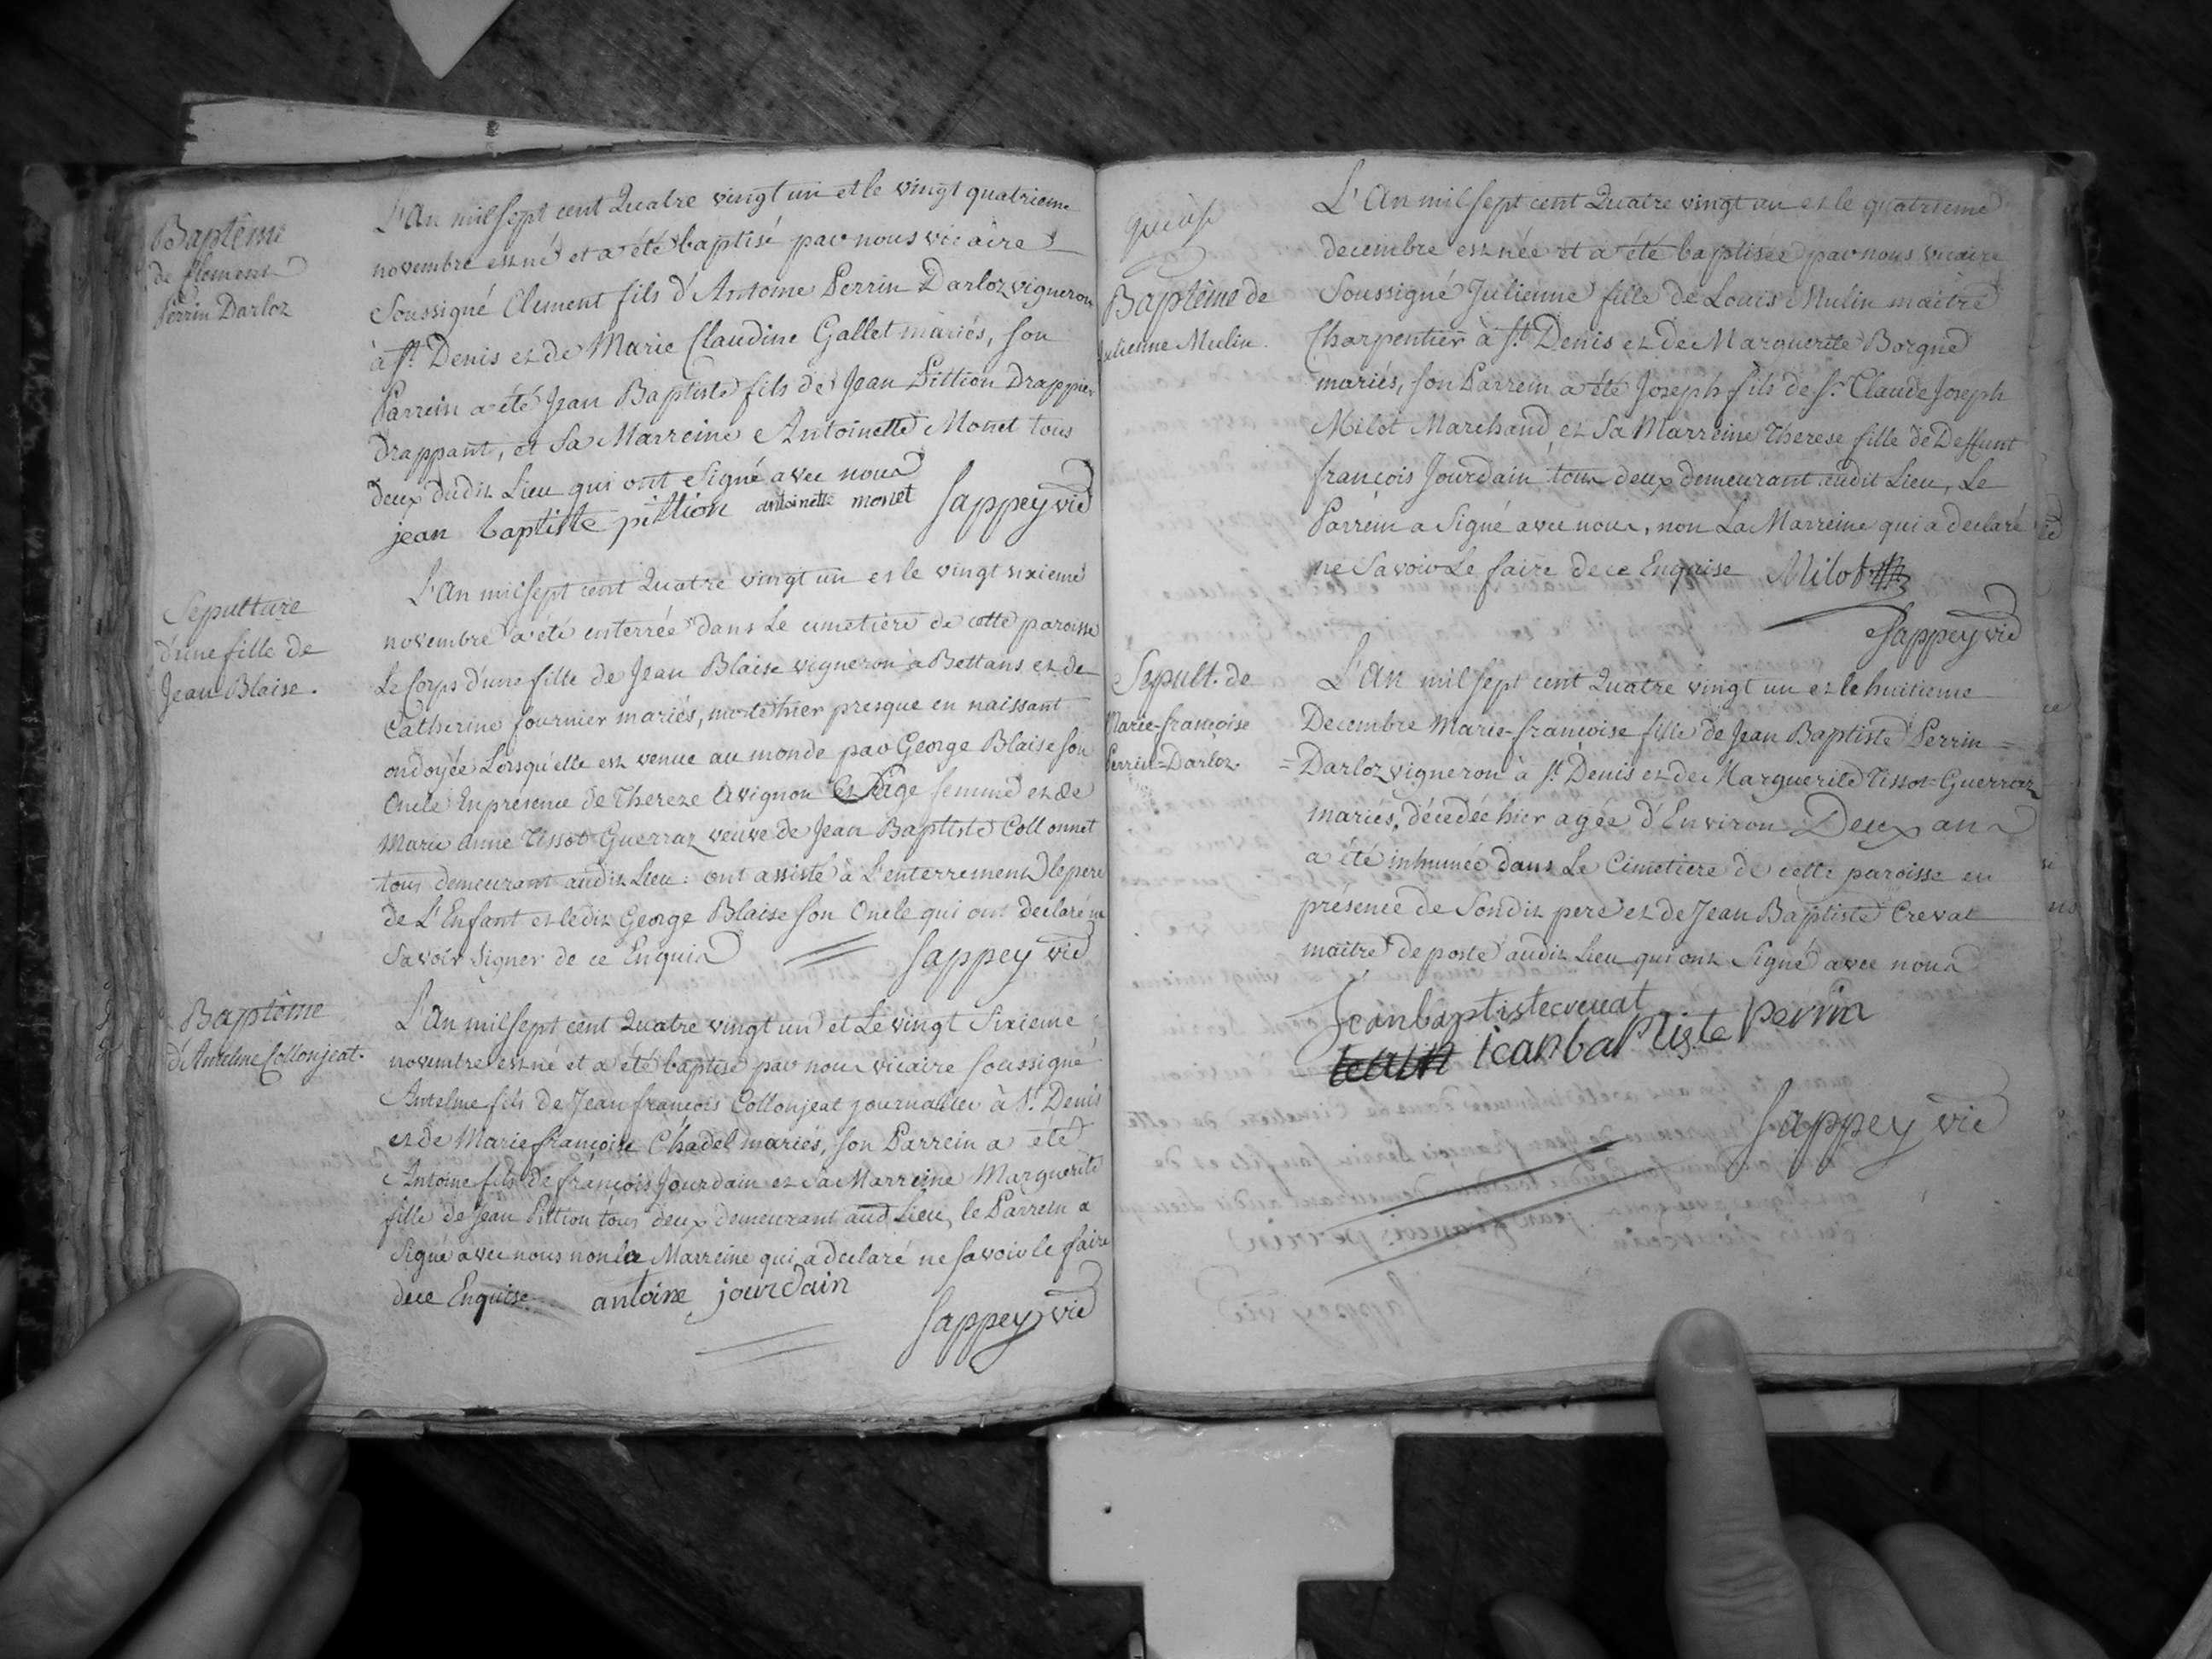 Baptême
de Clement
Perrin Darloz
L'An mil sept cent Quatre vingt un et le vingt quatrieme
novembre est né et a été baptisé par nous vicaire
Soussigné Clement fils d'Antoine Perrin Darloz vigneron
à St. Denis et de Marie Claudine Gallet mariés, son
Parrein a été Jean Baptiste fils de Jean Pittion Drappier
Drappant, et Sa Marreine Antoinette Monet tous
deux dudit Lieu qui ont Signé avec nous
jean baptiste pittion antoinette monet Sappey vic
Sepulture
d'une fille de
Jean Blaise.
L'An mil sept cent Quatre vingt un et le vingt sixieme
novembre a été enterrée dans Le cimetière de cette paroisse
Le Corps d'une fille de Jean Blaise vigneron à Bettans et de
Catherine fournier mariés, morte hier presque en naissant
ondoyée Lorsqu'elle est venue au monde par George Blaise son
Oncle En presence de Thereze Avignon Sage femme et de
Marie Anne Tissot Guerraz veuve de Jean Baptiste Collonnet
tous demeurant audit Lieu: ont assisté à L'enterrement le pere
de L'Enfant et ledit George Blaise son Oncle qui ont declaré ne
Savoir Signer de ce Enquis Sappey vic
Baptême
d'Antelme Collonjeat.
L'An mil sept cent Quatre vingt un et Le vingt Sixieme
novembre est né et a été baptisé par nous vicaire Soussigné
Antelme fils de Jean françois Collonjeat journalier à St. Denis
et de Marie françoise Chadel mariés, son Parrein a été
Antoine fils de françois Jourdain et Sa Marreine Marguerite
fille de Jean Pittion tous deux demeurant aud Lieu, le Parrein a
Signé avec nous non la Marreine qui a declaré ne Savoir le faire
de ce Enquise antoine jourdain
Sappey vic
Baptême de
Julienne Mulin.
L'An mil sept cent Quatre vingt un et le quatrieme
decembre est née et a été baptisée par nous vicaire
Soussigné Julienne fille de Louis Mulin maître
Charpentier à St. Denis et de Marguerite Borgne
mariés, son Parrein a été Joseph fils de Sr. Claude Joseph
Milot Marchand, et Sa Marreine Therese fille de Deffunt
françois Jourdain tous deux demeurant audit Lieu, Le
Parrein a Signé avec nous, non La Marreine qui a declaré
ne Savoir Le faire de ce Enquise Milot
Sappey vic
Sepult. de
Marie-françoise
Perrin=Darloz.
L'An mil sept cent Quatre vingt un et le huitieme
Decembre Marie-françoise fille de Jean Baptiste Perrin=
=Darloz vigneron à St. Denis et de Marguerite Tissot-Guerraz
mariés, décédée hier agée d'Environ Deux ans
a été inhumée dans Le Cimetiere de cette paroisse en
présence de Sondit pere et de Jean Baptiste Crevat
maître de poste audit Lieu qui ont Signé avec nous
Jeanbaptistecrevat
jeanbaptiste Perrin
Sappey vic